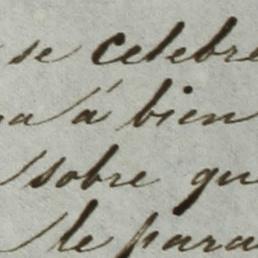 se celebre
a á bien
sobre qu
le para